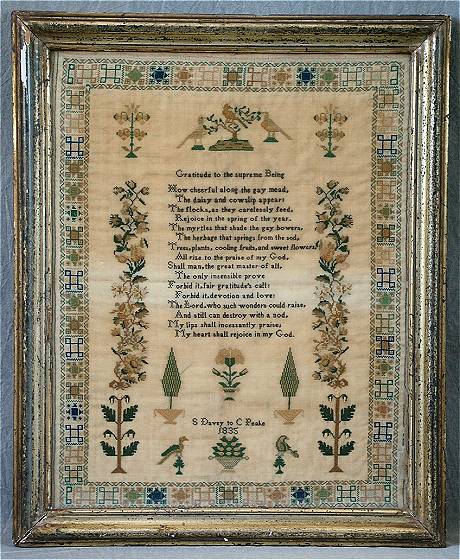 Gratitude to the supreme Being
How cheerful along the gay mead,
The daisy and cowslip appears
The flocks, as they carelessly feed,
Rejoice in the spring of the year.
The myrtles that shade the gay bowers,
The herbage that springs from the sod,
Trees, plants, cooling fruits, and sweet flowers,
All rise to the praise of my God.
Shall man, the great master of all,
The only insensible prove
Forbid it, fair gratitude's call:
Forbid it, devotion and love:
The Lord, who such wonders could raise,
And still can destroy with a nod,
My lips shall incessantly praise;
My heart shall rejoice in my God.
S Davey to C Peake
1835